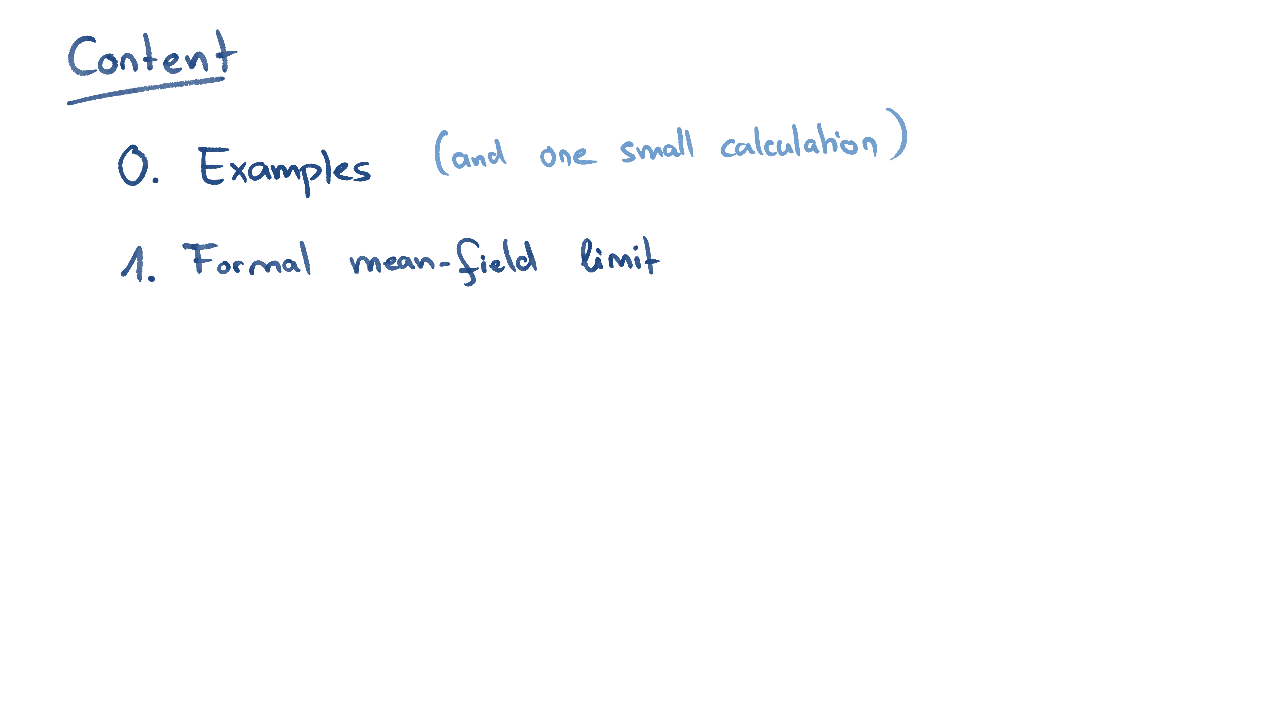 Content
0. Examples (and one small calculation)
1. Formal mean-field limit